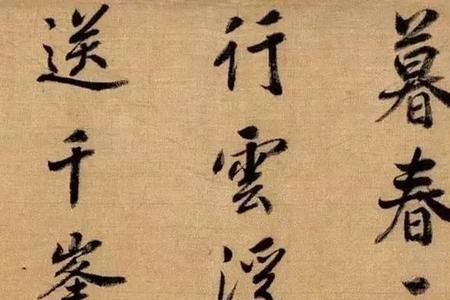 暮春
行雲
送千峯